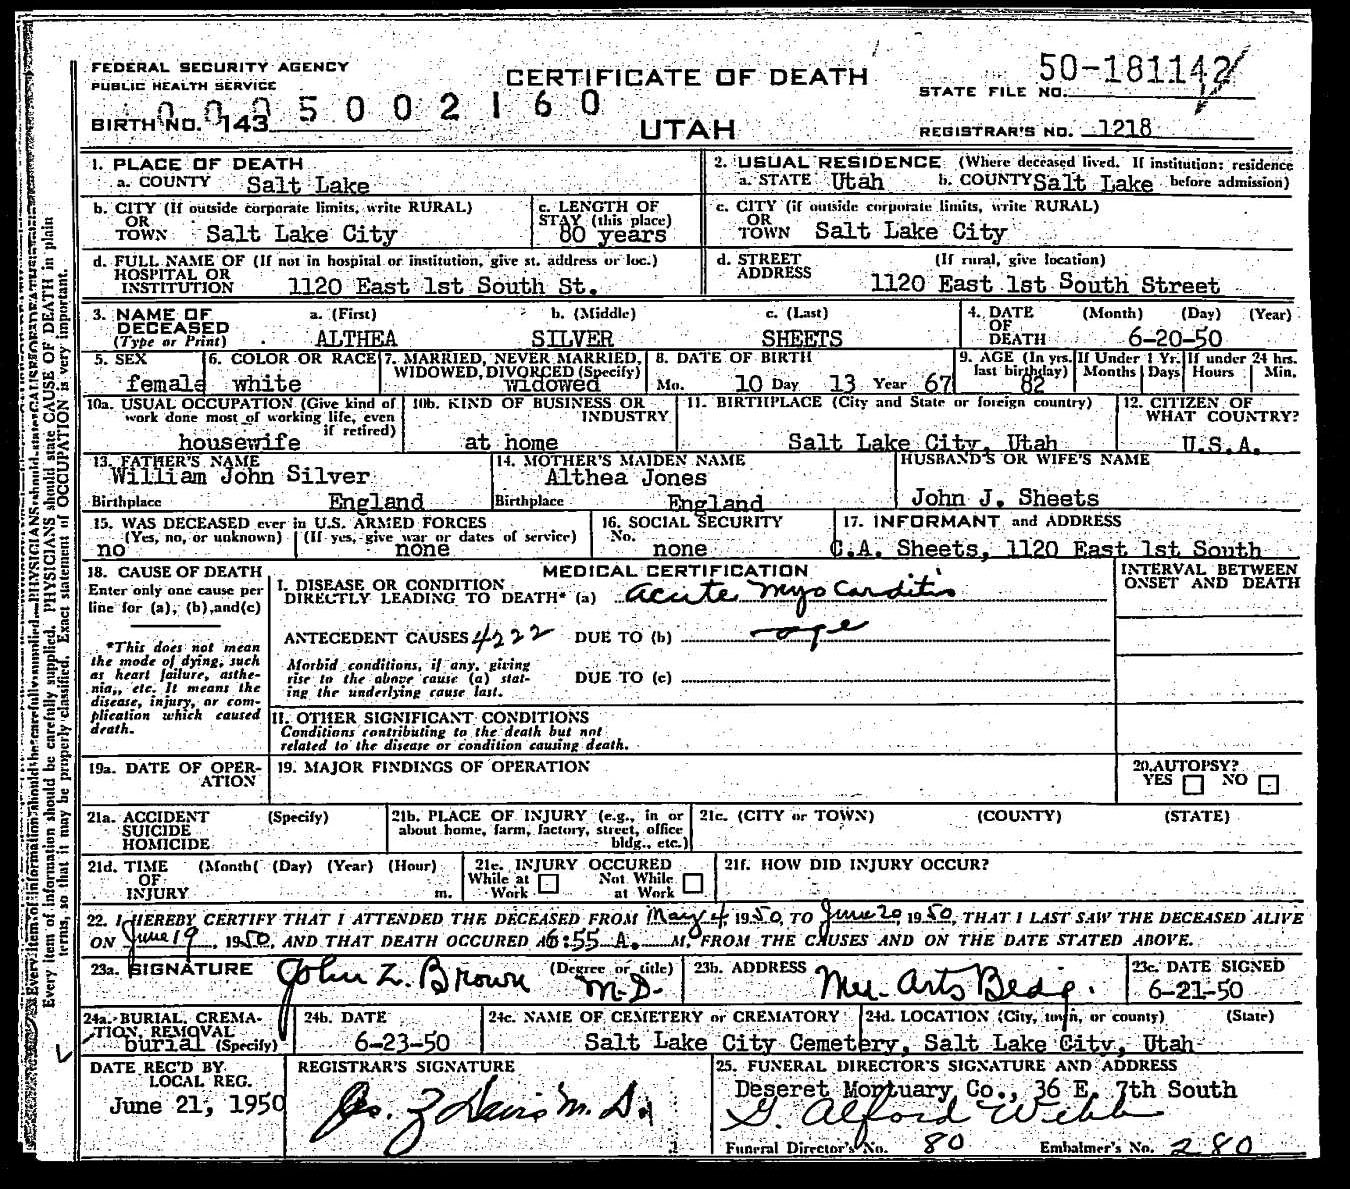 FEDERAL SECURITY AGENCY
PUBLIC HEALTH SERVICE
CERTIFICATE OF DEATH
UTAH
STATE FILE NO. 50-181142
BIRTH NO. 143
0005002160
REGISTRAR'S NO. 1218
1. PLACE OF DEATH
a. COUNTY Salt Lake
2. USUAL RESIDENCE (Where deceased lived. If institution: residence before admission)
a. STATE Utah b. COUNTY Salt Lake
b. CITY (If outside corporate limits, write RURAL)
OR
TOWN Salt Lake City
c. LENGTH OF
STAY (this place)
80 years
c. CITY (if outside corporate limits, write RURAL)
OR
TOWN Salt Lake City
d. FULL NAME OF (If not in hospital or institution, give st. address or loc.)
HOSPITAL OR
INSTITUTION 1120 East 1st South St.
d. STREET (If rural, give location)
ADDRESS 1120 East 1st South Street
3. NAME OF a. (First) b. (Middle) c. (Last)
DECEASED
(Type or Print) ALTHEA SILVER SHEETS
4. DATE (Month) (Day) (Year)
OF
DEATH 6-20-50
5. SEX
female
6. COLOR OR RACE
white
7. MARRIED, NEVER MARRIED,
WIDOWED, DIVORCED (Specify)
widowed
8. DATE OF BIRTH
Mo. 10 Day 13 Year 67
9. AGE (In yrs. last birthday)
82
If Under 1 Yr.
Months Days
If under 24 hrs.
Hours Min.
10a. USUAL OCCUPATION (Give kind of
work done most of working life, even
if retired)
housewife
10b. KIND OF BUSINESS OR
INDUSTRY
at home
11. BIRTHPLACE (City and State or foreign country)
Salt Lake City, Utah
12. CITIZEN OF
WHAT COUNTRY?
U.S.A.
13. FATHER'S NAME
William John Silver
Birthplace England
14. MOTHER'S MAIDEN NAME
Althea Jones
Birthplace England
HUSBAND'S OR WIFE'S NAME
John J. Sheets
15. WAS DECEASED ever in U.S. ARMED FORCES
(Yes, no, or unknown) (If yes, give war or dates of service)
no none
16. SOCIAL SECURITY
No.
none
17. INFORMANT and ADDRESS
C.A. Sheets, 1120 East 1st South
18. CAUSE OF DEATH
Enter only one cause per
line for (a), (b), and (c)
*This does not mean
the mode of dying, such
as heart failure, asthe-
nia,, etc. It means the
disease, injury, or com-
plication which caused
death.
MEDICAL CERTIFICATION
INTERVAL BETWEEN
ONSET AND DEATH
I. DISEASE OR CONDITION
DIRECTLY LEADING TO DEATH* (a) acute myocarditis
ANTECEDENT CAUSES 4222 DUE TO (b) age
Morbid conditions, if any, giving
rise to the above cause (a) stat-
ing the underlying cause last.
DUE TO (c)
II. OTHER SIGNIFICANT CONDITIONS
Conditions contributing to the death but not
related to the disease or condition causing death.
19a. DATE OF OPER-
ATION
19. MAJOR FINDINGS OF OPERATION
20. AUTOPSY?
YES NO
21a. ACCIDENT (Specify)
SUICIDE
HOMICIDE
21b. PLACE OF INJURY (e.g., in or
about home, farm, factory, street, office
bldg., etc.)
21c. (CITY or TOWN) (COUNTY) (STATE)
21d. TIME (Month( (Day) (Year) (Hour)
OF
INJURY m.
21e. INJURY OCCURED
While at Work Not While at Work
21f. HOW DID INJURY OCCUR?
22. I HEREBY CERTIFY THAT I ATTENDED THE DECEASED FROM May 4, 1950, TO June 20, 1950, THAT I LAST SAW THE DECEASED ALIVE
ON June 19, 1950, AND THAT DEATH OCCURED AT 6:55 A. M, FROM THE CAUSES AND ON THE DATE STATED ABOVE.
23a. SIGNATURE (Degree or title)
John Z. Brown M.D.
23b. ADDRESS
Med. Arts Bldg.
23c. DATE SIGNED
6-21-50
24a. BURIAL, CREMA-
TION, REMOVAL
burial (Specify)
24b. DATE
6-23-50
24c. NAME OF CEMETERY or CREMATORY 24d. LOCATION (City, town, or county) (State)
Salt Lake City Cemetery, Salt Lake City, Utah
DATE REC'D BY
LOCAL REG.
June 21, 1950
REGISTRAR'S SIGNATURE
Geo. Z Davis M. D.
25. FUNERAL DIRECTOR'S SIGNATURE AND ADDRESS
Deseret Mortuary Co., 36 E. 7th South
G. Alford Webb
Funeral Director's No. 80 Embalmer's No. 280
Every item of information should be carefully supplied. PHYSICIANS should state CAUSE OF DEATH in plain
terms, so that it may be properly classified. Exact statement of OCCUPATION is very important.